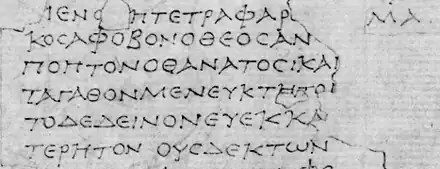 ΜΕΝΟ ΗΤΕΤΡΑΦΑΡ ΜΑ
ΚΟΣΑΦΟΒΟΝΟΘΕΟΣΑΝ
ΠΟΠΤΟΝΟΘΑΝΑΤΟΣ:ΚΑΙ
ΤΑΓΑΘΟΝΜΕΝΕΥΚΤΗΤΟ
ΤΟΔΕΔΕΙΝΟΝΕΥΕΚΚΑ
ΤΕΡΗΤΟΝ ΟΥΣΔΕΚΤΩΝ